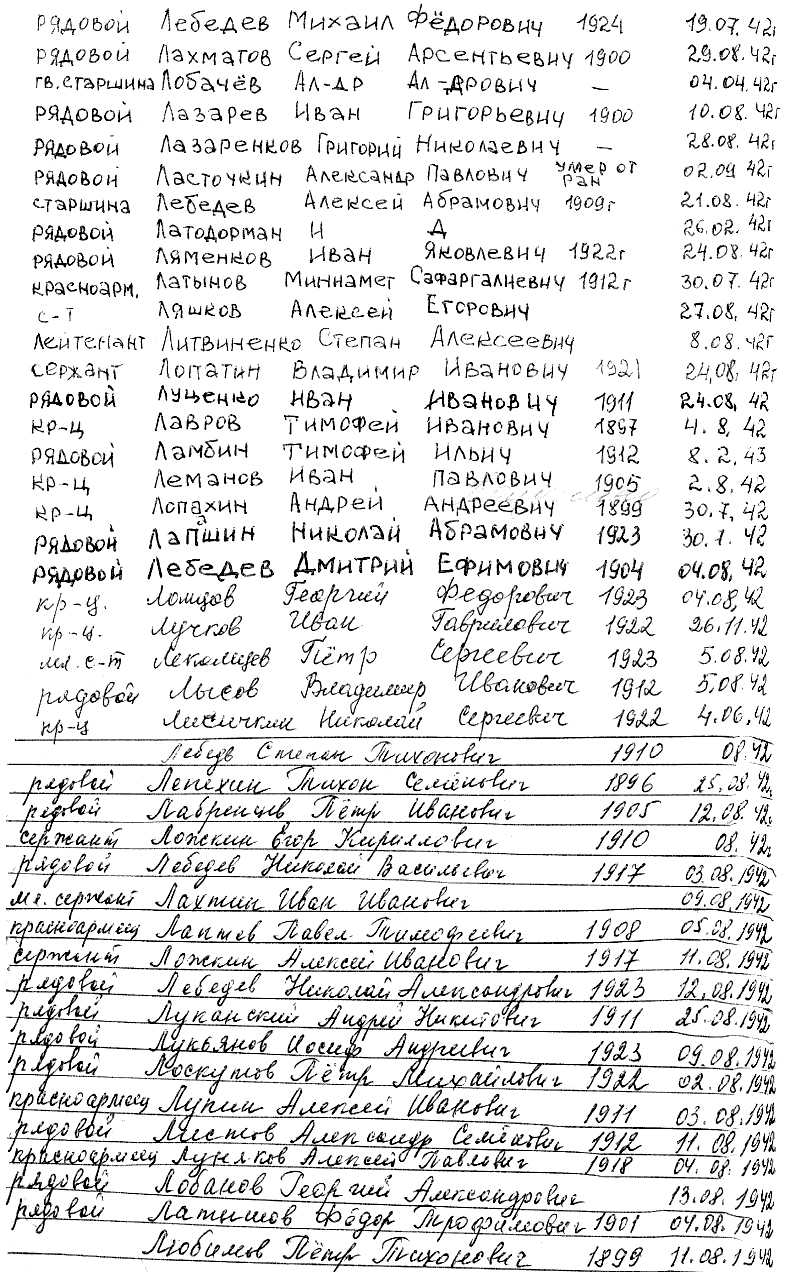 рядовой Лебедев Михаил Фёдорович 1924 19.07.42г
рядовой Лахматов Сергей Арсентьевич 1900 29.08.42г
гв.старшина Лобачёв Ал-др Ал-дрович — 04.04.42г
рядовой Лазарев Иван Григорьевич 1900 10.08.42г
рядовой Лазаренков Григорий Николаевич — 28.08.42г
рядовой Ласточкин Александр Павлович умер от ран 02.09 42г
старшина Лебедев Алексей Абрамович 1909г 21.08.42г
рядовой Латодорман И Д 26.02.42г
рядовой Ляменков Иван Яковлевич 1922г 24.08.42г
красноарм. Латынов Миннамет Сафаргалиевич 1912г 30.07.42г
с-т Ляшков Алексей Егорович 27.08.42г
лейтенант Литвиненко Степан Алексеевич 8.08.42г
сержант Лопатин Владимир Иванович 1921 24.08.42г
рядовой Луценко Иван Иванович 1911 24.08.42
кр-ц Лавров Тимофей Иванович 1897 4.8.42
рядовой Ламбин Тимофей Ильич 1912 8.2.43
кр-ц Леманов Иван Павлович 1905 2.8.42
кр-ц Лопахин Андрей Андреевич 1899 30.7.42
рядовой Лапшин Николай Абрамович 1923 30.7.42
рядовой Лебедев Дмитрий Ефимович 1904 04.08.42
кр-ц. Ломцов Георгий Федорович 1923 04.08.42
кр-ц. Лучков Иван Гаврилович 1922 26.11.42
мл. с-т Лекомцев Пётр Сергеевич 1923 5.08.42
рядовой Лысов Владимир Иванович 1912 5.08.42
кр-ц Лисичкин Николай Сергеевич 1922 4.06.42
Лебедь Степан Тихонович 1910 08.42
рядовой Лепехин Тихон Семёнович 1896 25.08.42г
рядовой Лавренцев Пётр Иванович 1905 12.08.42г
сержант Ложкин Егор Кириллович 1910 08.42г
рядовой Лебедев Николай Васильевич 1917 03.08.1942
мл. сержант Лахтин Иван Иванович 09.08.1942
красноармеец Лаптев Павел Тимофеевич 1908 05.08.1942
сержант Ложкин Алексей Иванович 1917 11.08.1942
рядовой Лебедев Николай Александрович 1923 12.08.1942
рядовой Луканский Андрей Никитович 1911 25.08.1942
рядовой Лукьянов Иосиф Андреевич 1923 09.08.1942
рядовой Лоскутов Пётр Михайлович 1922 02.08.1942
красноармеец Лупин Алексей Иванович 1911 03.08.1942
рядовой Листов Александр Семёнович 1912 11.08.1942
красноармеец Луняков Алексей Павлович 1918 04.08.1942
рядовой Лобанов Георгий Александрович 13.08.1942
рядовой Латышов Фёдор Трофимович 1901 04.08.1942
Любимов Пётр Тихонович 1899 11.08.1942